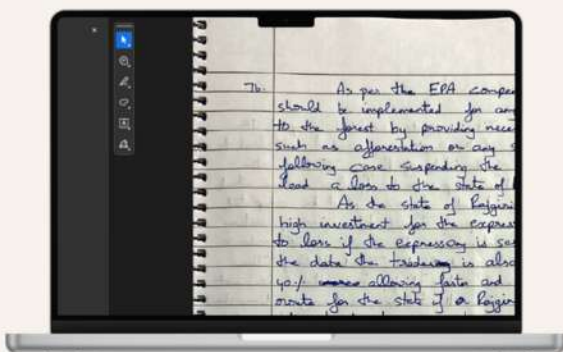 7b. As per the EPA compe
should be implemented for an
to the forest by providing nece
such as afforestation or any s
following case suspending the
lead a loss to the state of
As the state of Rajgiri
high investment for the express
to loss if the expressay is se
the date the is also
40% allowing faster and
route for the state of Rajgir